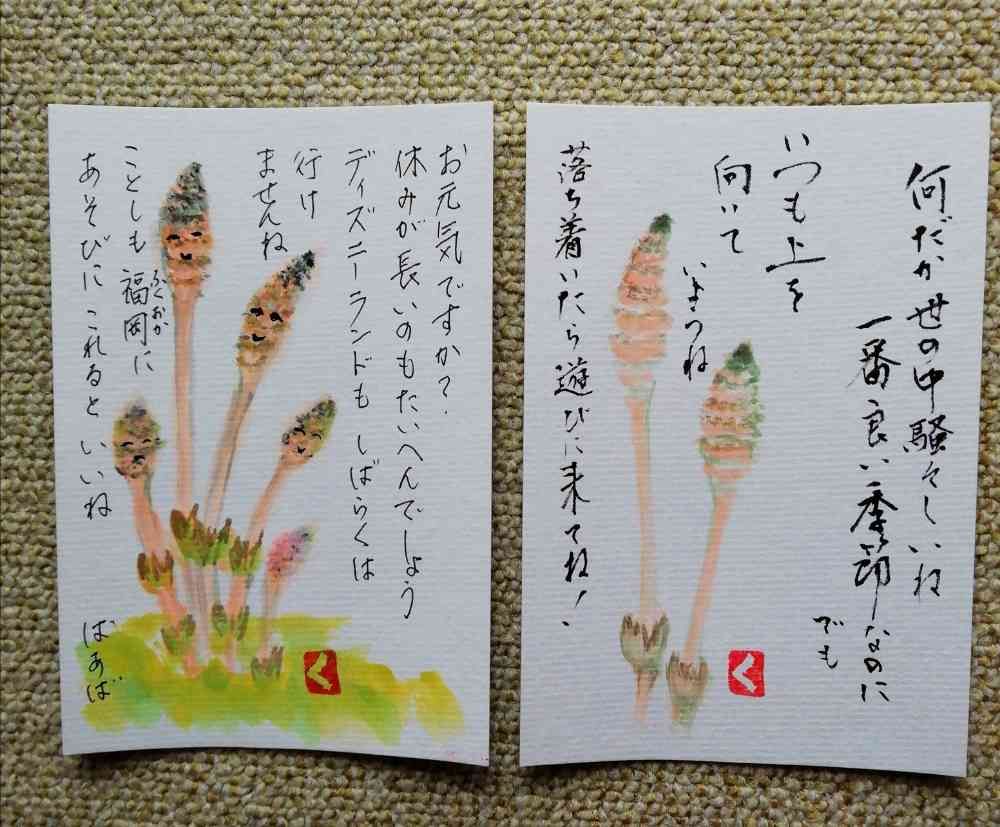 お元気ですか?
休みが長いのもたいへんでしょう
ディズニーランドも しばらくは
行け
ませんね
ことしも 福岡に
ふくおか
あそびに これると いいね
ばあば
く
何だか 世の中 騒々しいね
一番 良い 季節なのに
でも
いつも上を
向いて
いようね
落ち着いたら 遊びに 来てね!
く